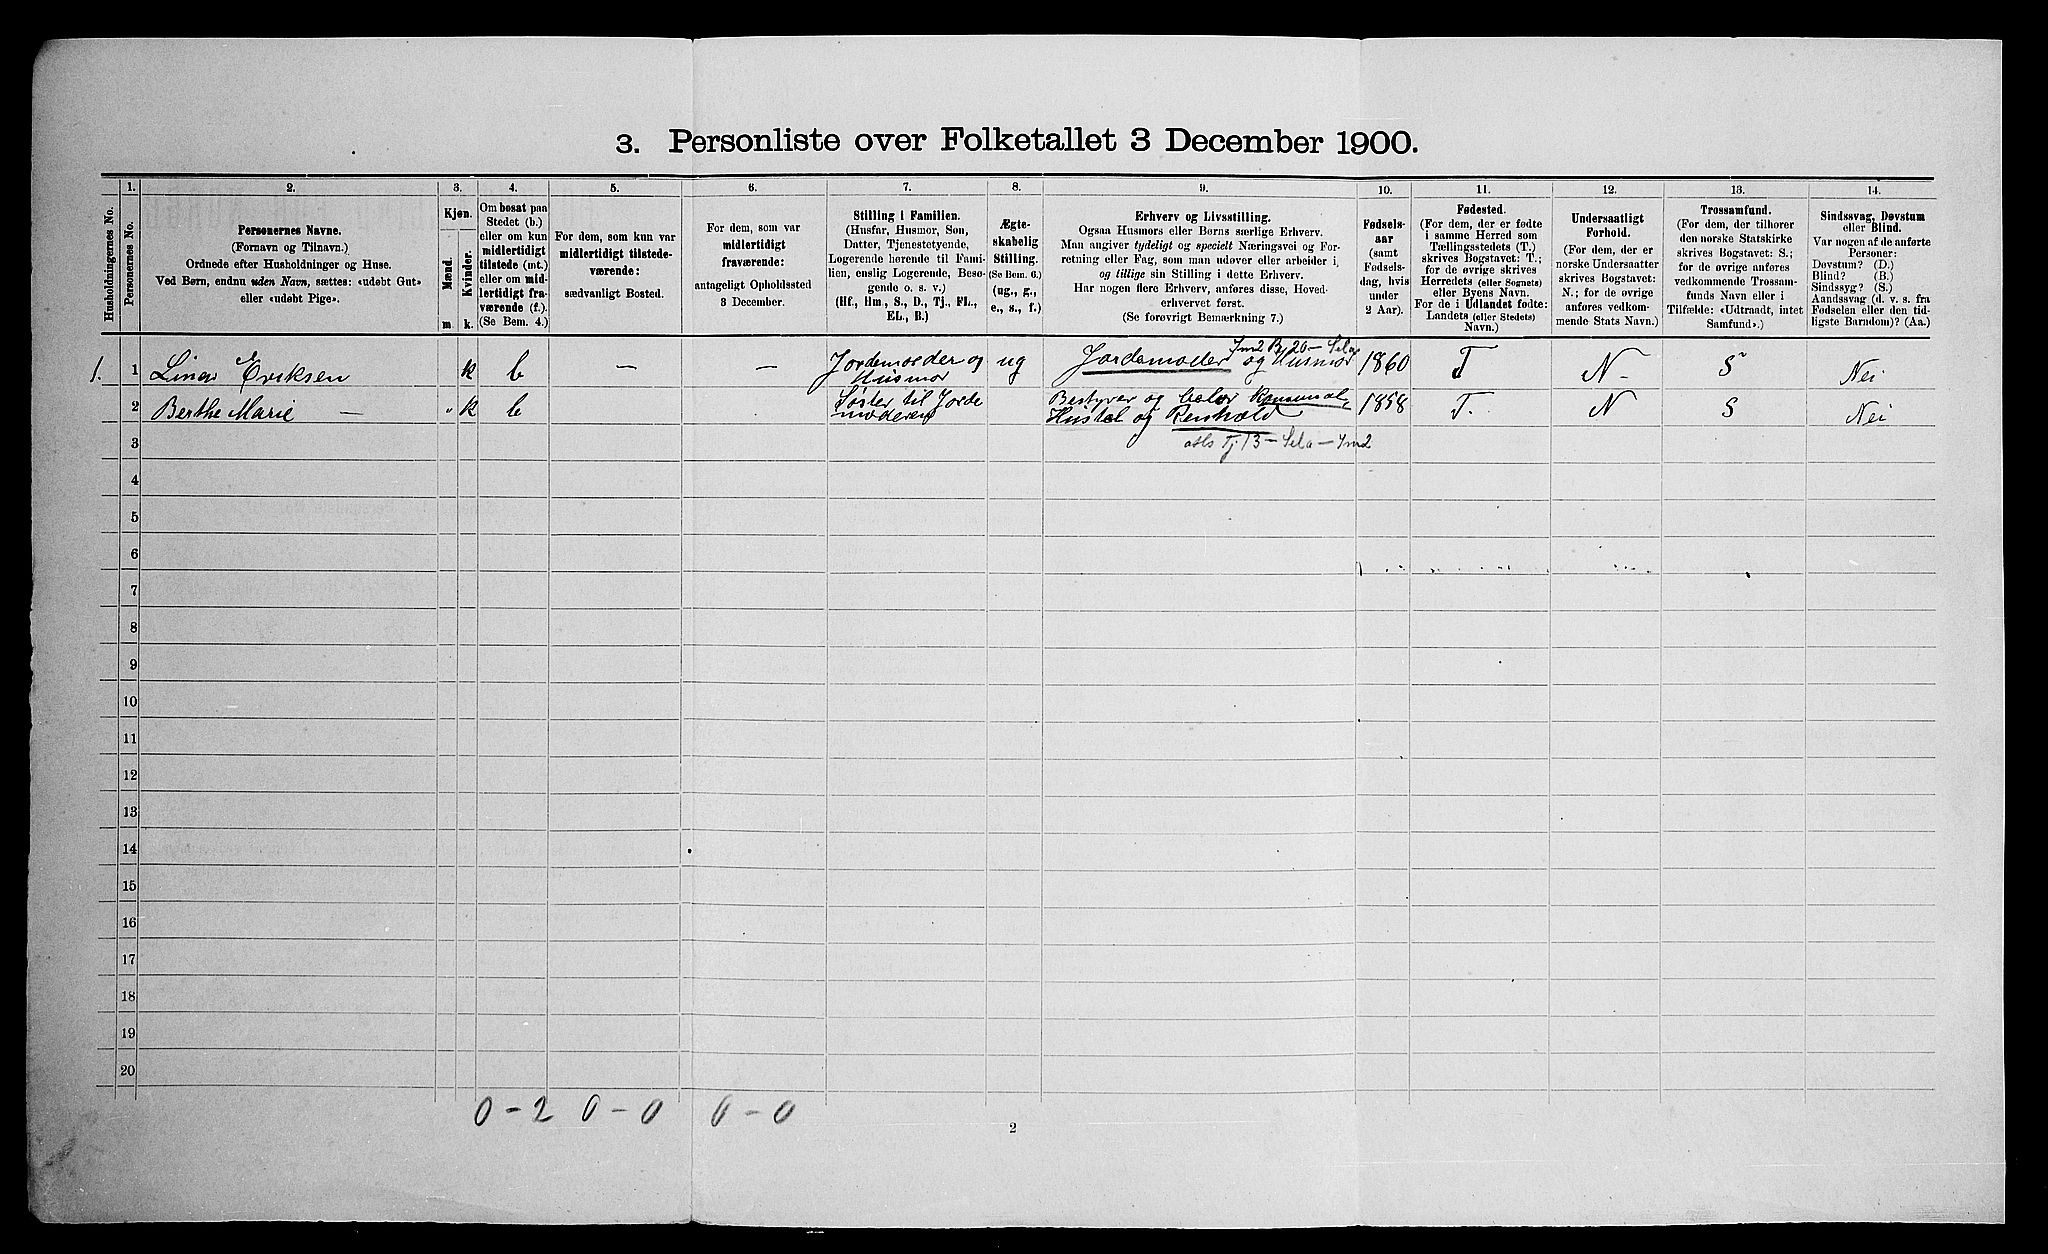 3. Personliste over Folketallet 3 December 1900.
1. 2. 3. 4. 5. 6. 7. 8. 9. 10. 11. 12. 13. 14.
Husholdningernes No.
Personernes No.
Personernes Navne.
(Fornavn og Tilnavn.)
Ordnede efter Husholdninger og Huse.
Ved Børn, endnu uden Navn, sættes: «udøbt Gut»
eller «udøbt Pige».
Kjøn.
Mænd.
Kvinder.
m k.
Om bosat paa
Stedet (b.)
eller om kun
midlertidigt
tilstede (mt.)
eller om mid-
lertidigt fra-
værende (f.).
(Se Bem. 4.)
For dem, som kun var
midlertidigt tilstede-
værende:
sædvanligt Bosted.
For dem, som var
midlertidigt
fraværende:
antageligt Opholdssted
3 December.
Stilling i Familien.
(Husfar, Husmor, Søn,
Datter, Tjenestetyende,
Logerende hørende til Fami-
lien, enslig Logerende, Besø-
gende o. s. v.)
(Hf., Hm., S., D., Tj., FL.,
EL., B.)
Ægte-
skabelig
Stilling.
(Se Bem. 6.)
(ug., g.,
e., s., f.)
Erhverv og Livsstilling.
Ogsaa Husmors eller Børns særlige Erhverv.
Man angiver tydeligt og specielt Næringsvei og For-
retning eller Fag, som man udøver eller arbeider i,
og tillige sin Stilling i dette Erhverv.
Har nogen flere Erhverv, anføres disse, Hoved-
erhvervet først.
(Se forøvrigt Bemærkning 7.)
Fødsels-
aar
(samt
Fødsels-
dag, hvis
under
2 Aar).
Fødested.
(For dem, der er fødte
i samme Herred som
Tællingsstedets (T.)
skrives Bogstavet: T.;
for de øvrige skrives
Herredets (eller Sognets)
eller Byens Navn.
For de i Udlandet fødte:
Landets (eller Stedets)
Navn.)
Undersaatligt
Forhold.
(For dem, der er
norske Undersaatter
skrives Bogstavet:
N.; for de øvrige
anføres vedkom-
mende Stats Navn.)
Trossamfund.
(For dem, der tilhører
den norske Statskirke
skrives Bogstavet: S.;
for de øvrige anføres
vedkommende Trossam-
funds Navn eller i
Tilfælde: «Udtraadt, intet
Samfund».)
Sindssvag, Døvstum
eller Blind.
Var nogen af de anførte
Personer:
Døvstum? (D.)
Blind? (B.)
Sindssyg? (S.)
Aandssvag (d. v. s. fra
Fødselen eller den tid-
ligste Barndom)? (Aa.)
1. 1 Lina Eriksen k b — — Jordemoder og Husmor ug Jordemoder og Husmor 1860 T N - S Nei
2 Berthe Marie — " k b Søster til Jordemoderen Bestyrer og Hustel og 1858 T. N S Nei
3
4
5
6
7
8
9
10
11
12
13
14
15
16
17
18
19
20
0-2 0-0 0-0
2